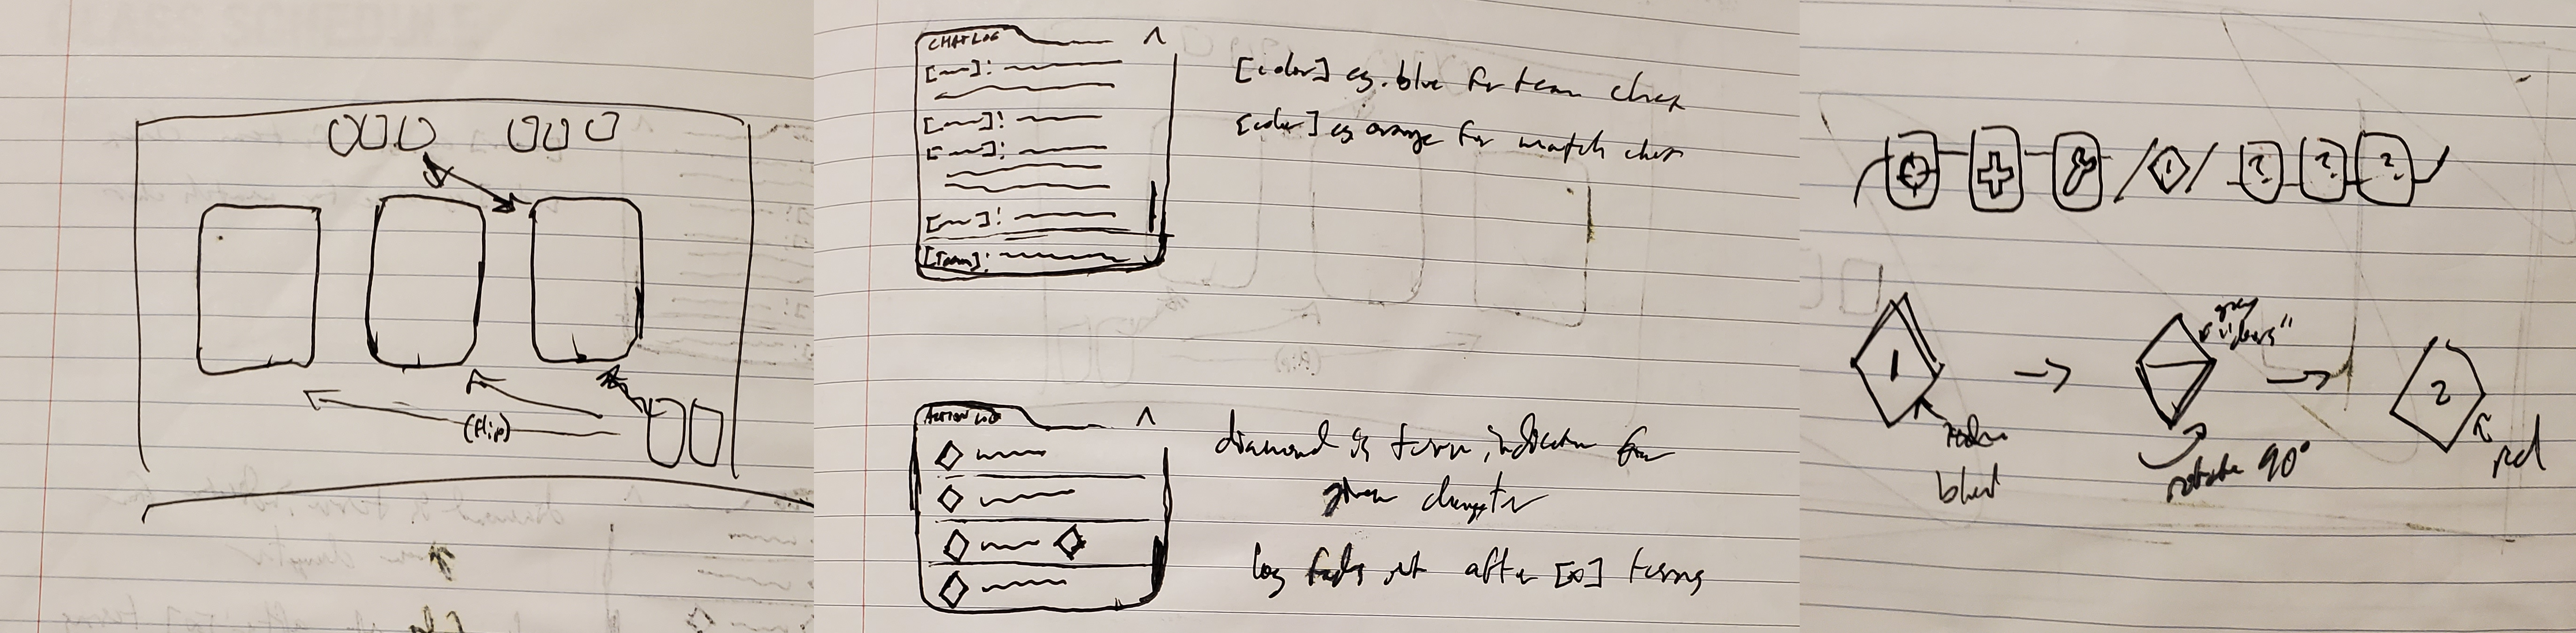 (flip)
CHATLOG
[color] eg. blue for team chat
[color] eg orange for match chat
[Team]:
ACTION LOG
diamond is turn indicator for
given character
log fades out after [x] turns
1
? ? ?
1
gray
"sides"
2
rotate 90°
red